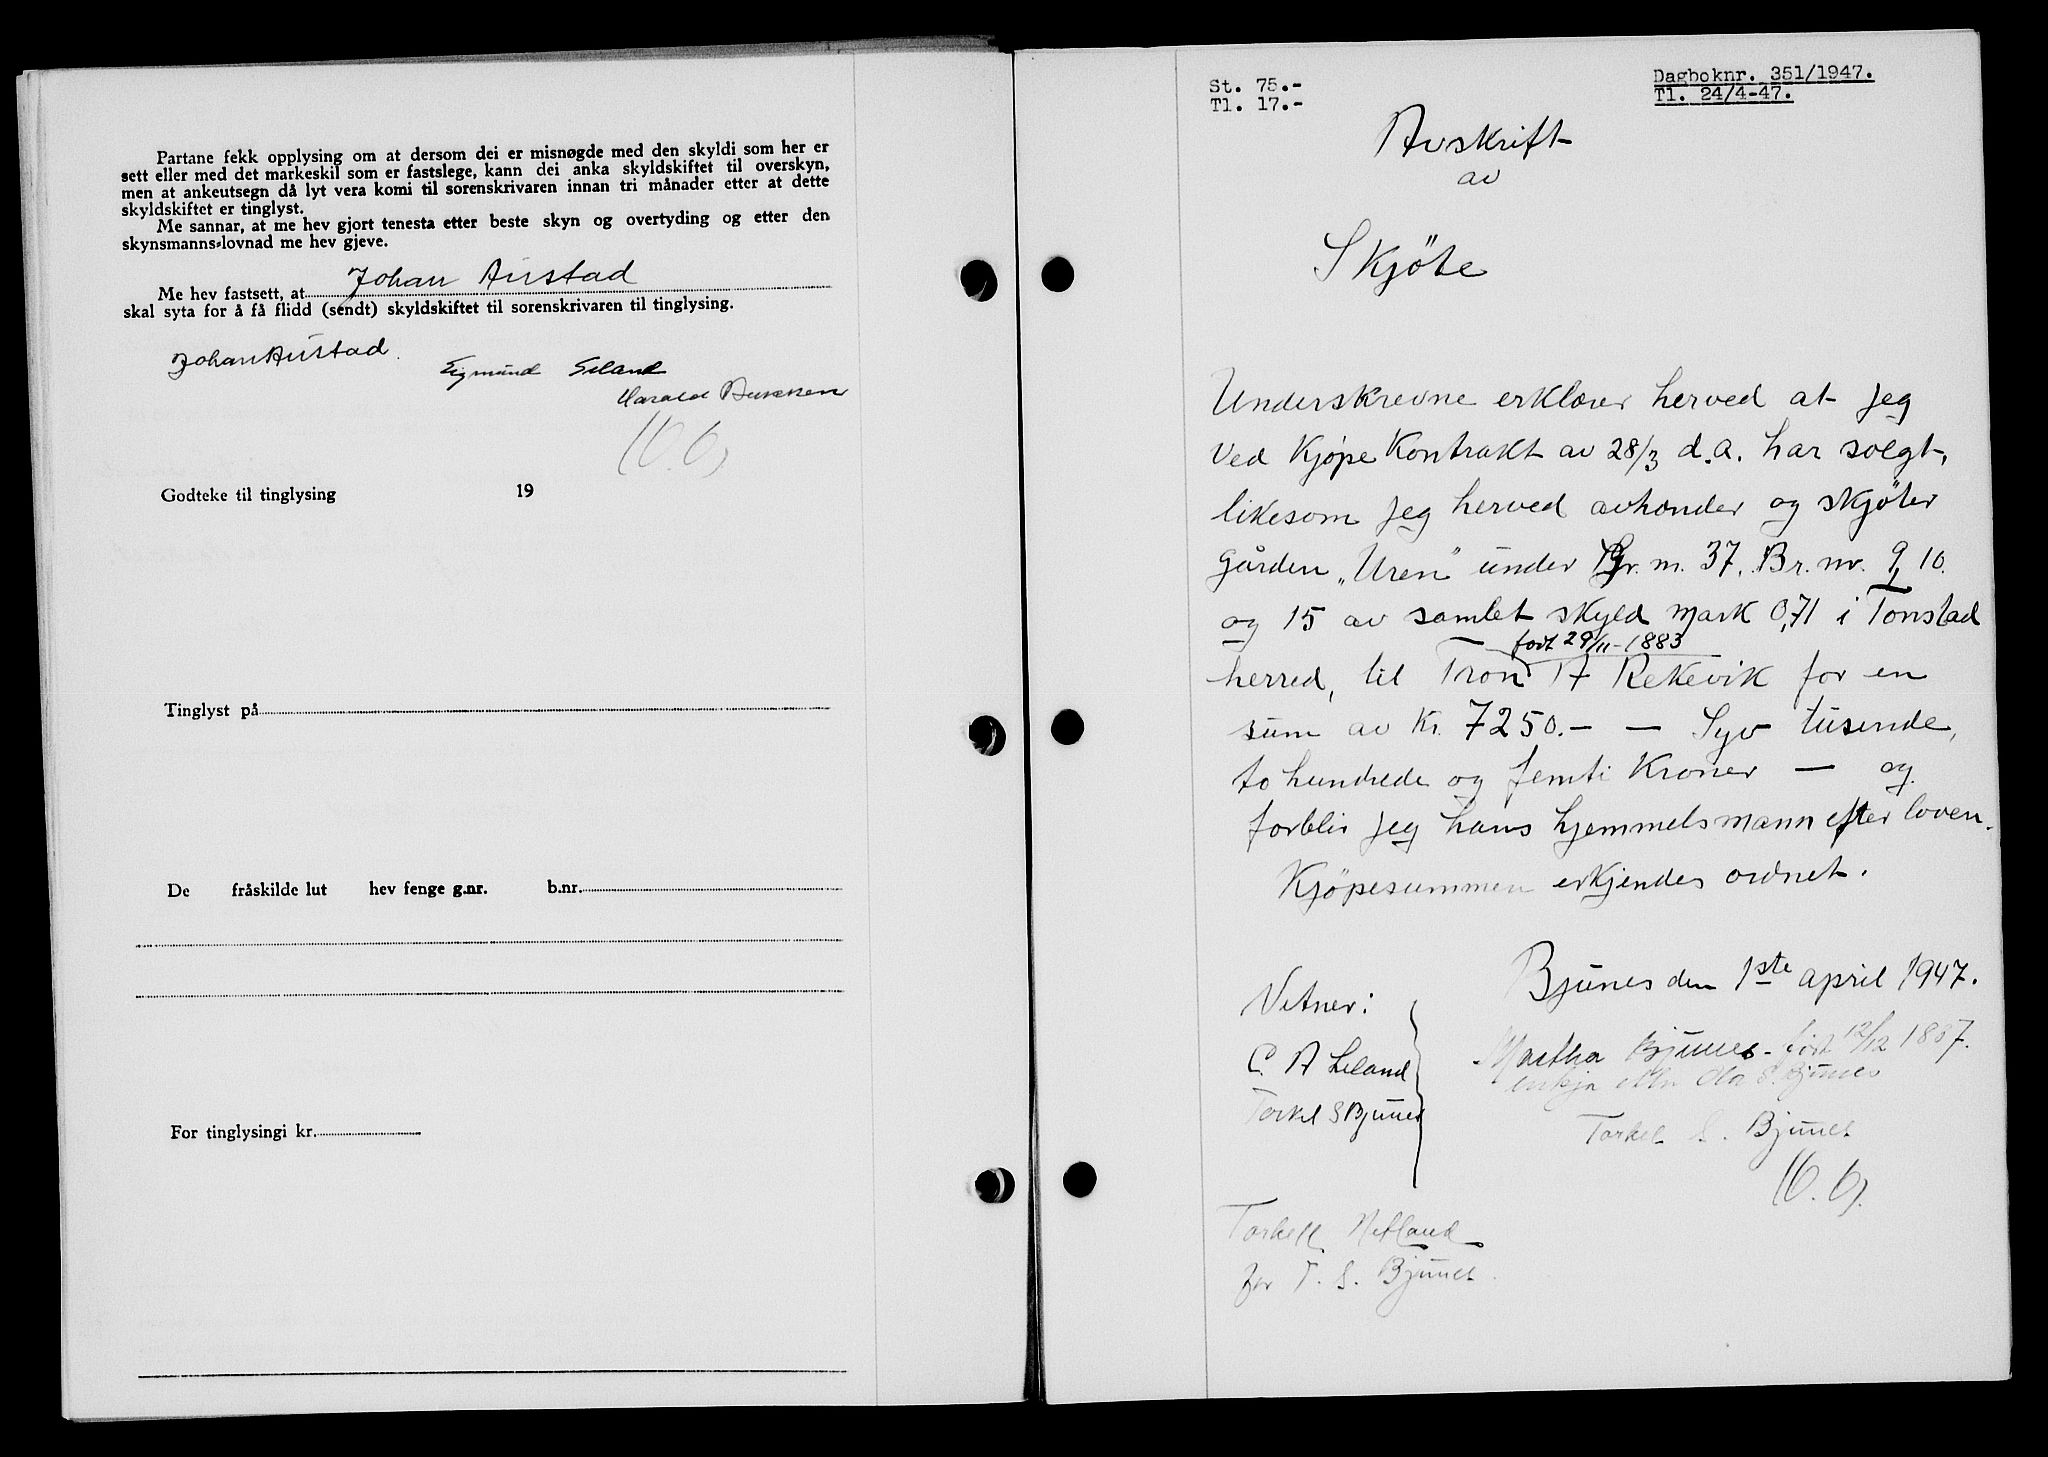 Partane fekk opplysing om at dersom dei er misnøgde med den skyldi som her er
sett eller med det markeskil som er fastslege, kann dei anka skyldskiftet til overskyn,
men at ankeutsegn då lyt vera komi til sorenskrivaren innan tri månader etter at dette
skyldskiftet er tinglyst.
Me sannar, at me hev gjort tenesta etter beste skyn og overtyding og etter den
skynsmanns-lovnad me hev gjeve.
Me hev fastsett, at Johan Austad
skal syta for å få flidd (sendt) skyldskiftet til sorenskrivaren til tinglysing.
Johan Austad.
Sigmund
Harald
Godteke til tinglysing 19
Tinglyst på
De fråskilde lut hev fenge g.nr. b.nr.
For tinglysingi kr.
St. 75.-
Tl. 17.-
Dagboknr. 351/1947.
Tl. 24/4-47.
Avskrift
av
Skjöte
Underskrevne erklærer herved at jeg
ved Kjøpe Kontrakt av 28/3 d.a. har solgt,
likesom jeg herved avhender og skjöter
gården "Uren" under Gr. nr. 37. Br. nr. 9, 10.
og 15 av samlet skyld mark 0,71 i Tonstad
født 29/11-1883
herred, til Tron A Rekevik for en
sum av Kr. 7250.- — Syv tusende,
to hundrede og femti Kroner — og
forblir jeg hans hjemmelsmann efter loven.
Kjöpesummen erkjendes ordnet.
Bjunes den 1ste april 1947.
Vitner:
C. A Leland
Torkel S Bjunes
Martha Bjunes - født 12/12 1867.
enkja etter Ola S. Bjunes
Torkel S. Bjunes
Torkell Netland
for T. S. Bjunes